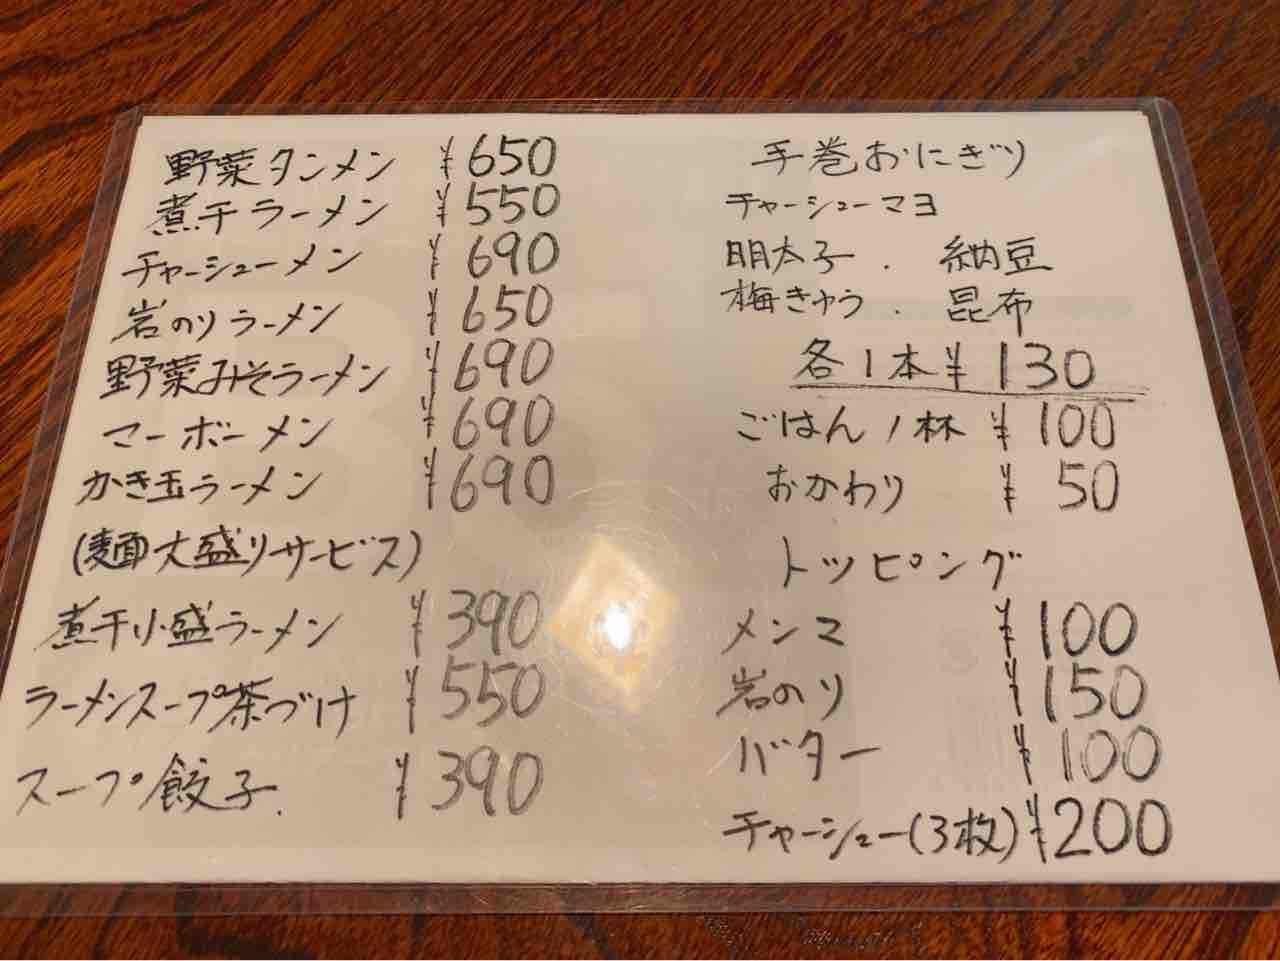 野菜タンメン ¥650
煮干ラーメン ¥550
チャーシューメン ¥690
岩のりラーメン ¥650
野菜みそラーメン ¥690
マーボーメン ¥690
かき玉ラーメン ¥690
(麺大盛りサービス)
煮干小盛ラーメン ¥390
ラーメンスープ茶づけ ¥550
スープ餃子. ¥390
手巻おにぎり
チャーシューマヨ
明太子. 納豆
梅きゅう. 昆布
各1本¥130
ごはん1杯 ¥100
おかわり ¥50
トッピング
メンマ ¥100
岩のり ¥150
バター ¥100
チャーシュー(3枚)¥200